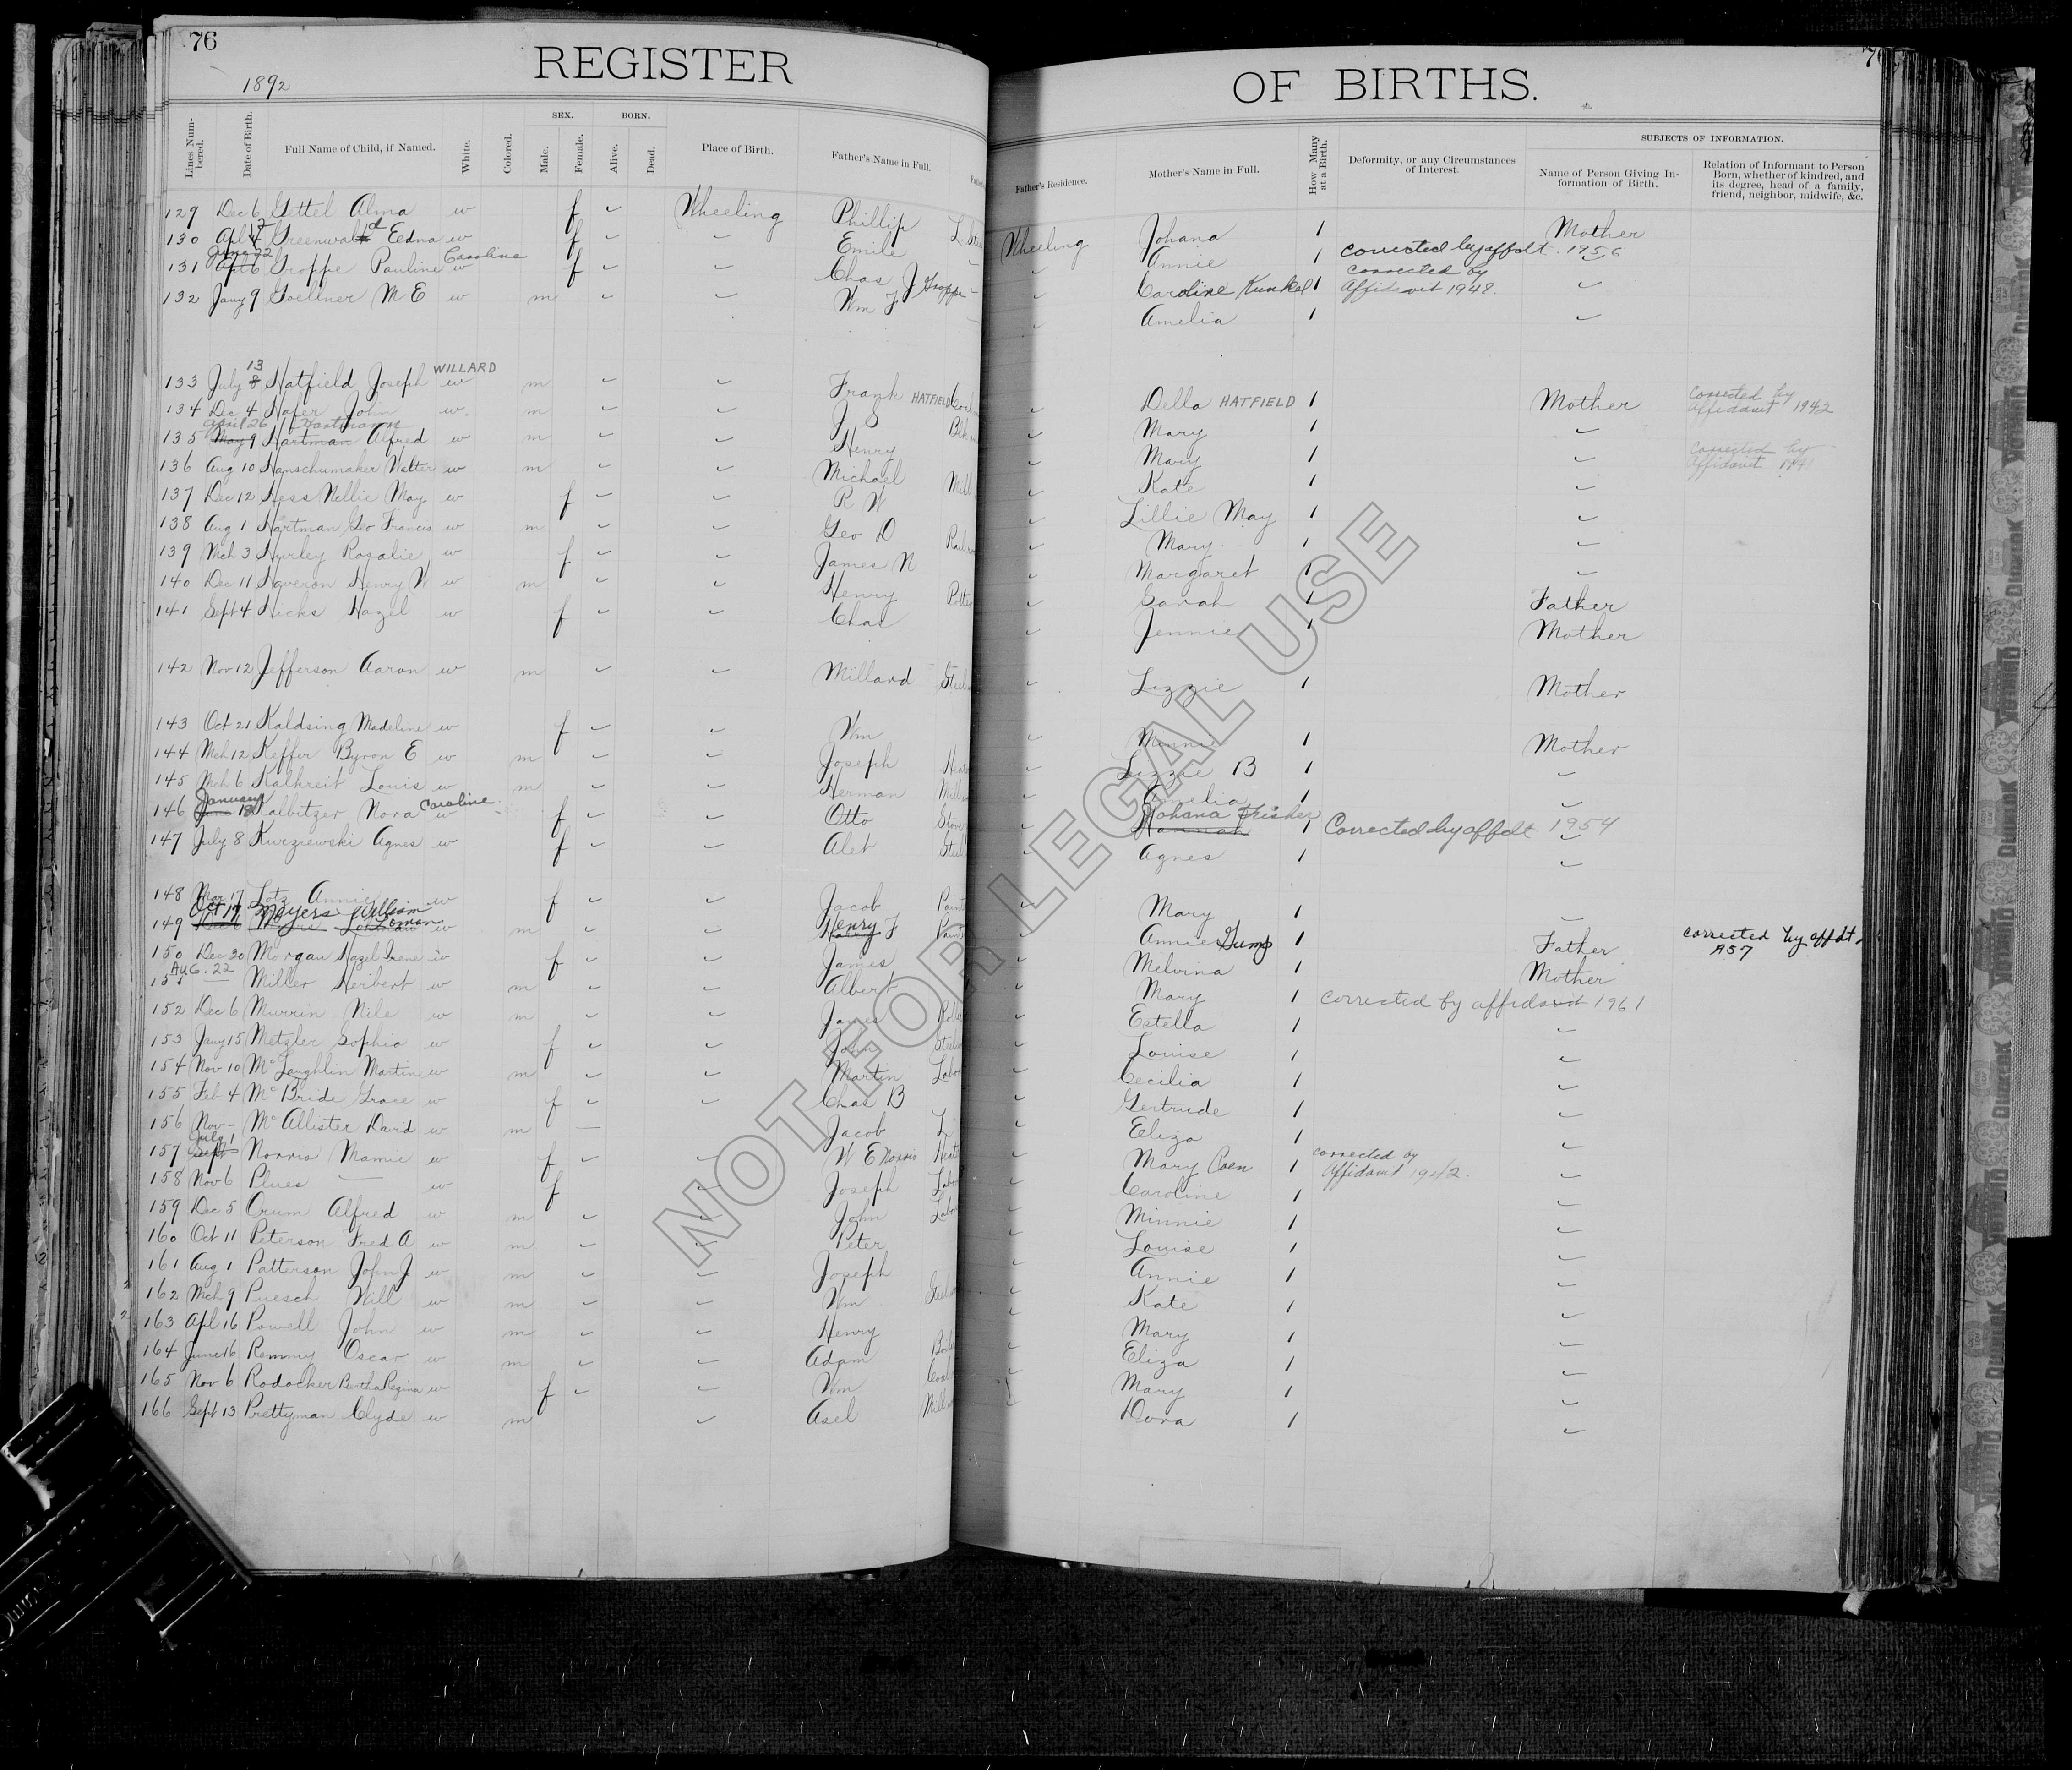 76
1892
REGISTER OF BIRTHS.
Lines Numbered. Date of Birth. Full Name of Child, if Named. White. Colored. SEX. Male. Female. BORN. Alive. Dead. Place of Birth. Father's Name in Full. Father's Residence. Mother's Name in Full. How Many at a Birth. Deformity, or any Circumstances of Interest. SUBJECTS OF INFORMATION. Name of Person Giving Information of Birth. Relation of Informant to Person Born, whether of kindred, and its degree, head of a family, friend, neighbor, midwife, &c.
129 Dec 6 Gettel Alma w f ✓ Wheeling Phillip Wheeling Johana 1 Mother
130 Apl 7 Greenwald Eedna w f ✓ Emile Annie 1 corrected by affdt. 1956
June 22 Caroline
131 Apl 6 Groppe Pauline w f ✓ Chas J Groppe Caroline Kunkel 1 corrected by Affidavit 1948.
132 Jany 9 Goellner M E w m ✓ Wm F Amelia 1
13 WILLARD
133 July 8 Hatfield Joseph w m ✓ Frank HATFIELD Della HATFIELD 1 Mother Corrected by Affidavit 1942
134 Dec 4 Hafer John w. m ✓ J Mary 1
April 26 Hartmann
135 May 9 Hartman Alfred w m ✓ Henry Mary 1 Corrected by Affidavit
136 Aug 10 Hanschumaker Walter w m ✓ Michael Mill Kate 1
137 Dec 12 Hess Nellie May w f ✓ R W Lillie May 1
138 Aug 1 Hartman Geo Francis w m ✓ Geo D Mary 1
139 Mch 3 Hurley Rosalie w f ✓ James N Margaret 1
140 Dec 11 Haveron Henry W w m ✓ Henry Potter Sarah 1 Father
141 Sept 4 Hicks Hazel w f ✓ Chas Jennie 1 Mother
142 Nov 12 Jefferson Aaron w m ✓ Millard Steel Lizzie 1 Mother
143 Oct 21 Kaldsing Madeline w f ✓ Wm Minnie 1 Mother
144 Mch 12 Keffer Byron E w m ✓ Joseph Lizzie B 1
145 Mch 6 Kalkreit Louis w m ✓ Herman Mill Amelia 1
January Caroline Johana Frisher
146 12 Kalbitzer Nora w f ✓ Otto Stove Hannah 1 Corrected by affdt 1954
147 July 8 Kurzrewski Agnes w f ✓ Alet Steel Agnes 1
148 Mar 17 Lotz Annie w f ✓ Jacob Paint Mary 1
Oct 17 Meyers William Loman Henry
149 Dec 6 w m ✓ F Paint Annie Gump 1 Father corrected by affdt. A57
150 Dec 20 Morgan Hazel Irene w f ✓ James Melvina 1 Mother
AUG. 22
151 Miller Heribert w m ✓ Albert Mary 1 corrected by affidavit 1961
152 Dec 6 Murrin Nile w m ✓ James Estella 1
153 Jany 15 Metzler Sophia w f ✓ John Steel Louise 1
154 Nov 10 McLaughlin Martin w m ✓ Martin Labor Cecilia 1
155 Feb 4 McBride Grace w f ✓ Chas B Gertrude 1
156 Nov - McAllister David w m — Jacob Eliza 1
July 1
157 Sept Norris Mamie w f ✓ W E Norris Mary Coen 1 corrected by Affidavit 1942.
158 Nov 6 Plues — w f Joseph Labor Caroline 1
159 Dec 5 Orum Alfred w m ✓ John Labor Minnie 1
160 Oct 11 Peterson Fred A w m ✓ Peter Louise 1
161 Aug 1 Patterson John J w m ✓ Joseph Annie 1
162 Mch 9 Puesch Will w m ✓ Wm Kate 1
163 Apl 16 Powell John w m ✓ Henry Mary 1
164 June 16 Remmy Oscar w m ✓ Adam Eliza 1
165 Nov 6 Rodocker Bertha Regina w f ✓ Wm Mary 1
166 Sept 13 Prettyman Clyde w m ✓ Asel Mill Dora 1
NOT FOR LEGAL USE